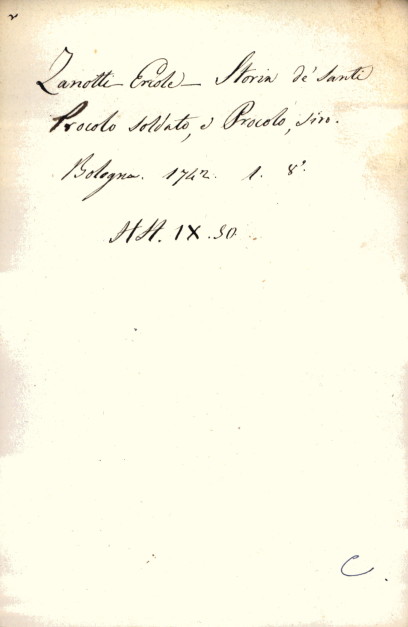 Zanotti Ercole - Storia de' Santi
Procolo soldato, e Procolo, siro.
Bologna. 1742. 1. 8°.
HH. IX. 50
C.